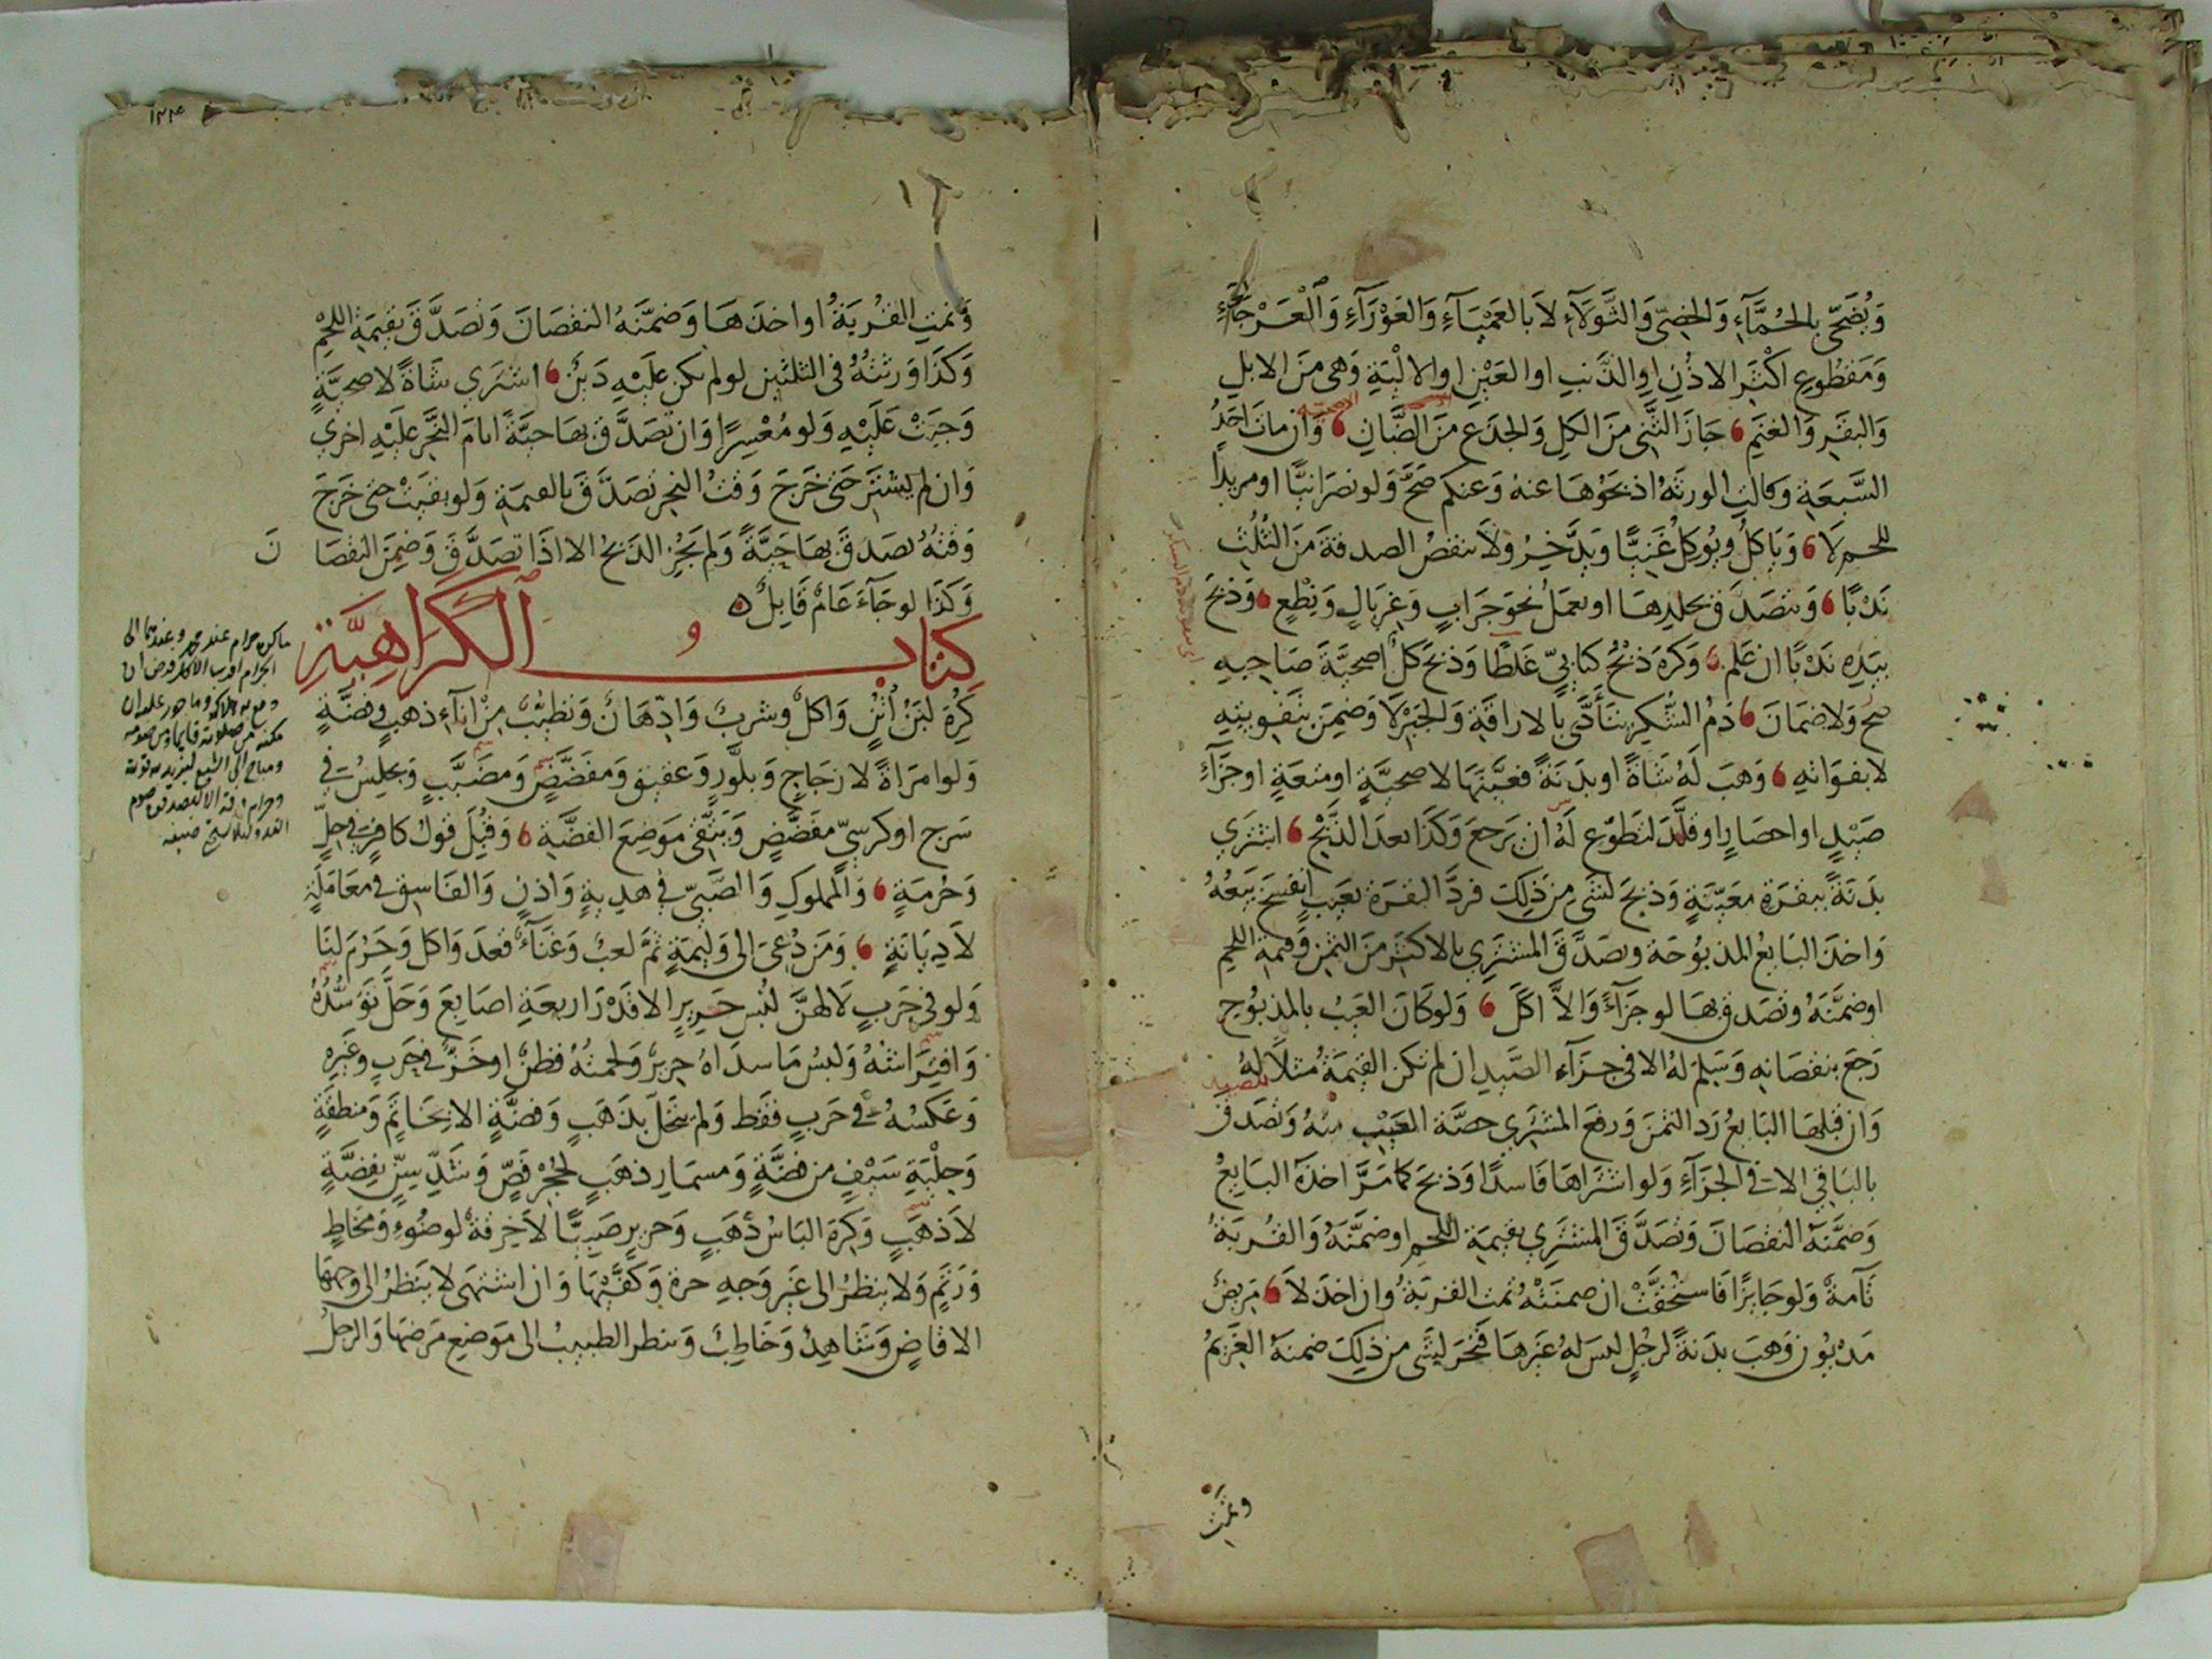 وَيُضَحّى بالحُمَّآءِ وَالخصِىّ وَالثَّوْلآءِ لاَ بالعَمْيَآءِ وَالعَوْرَآءِ وَالْعَرْجَآءِ
وَمَقْطُوعِ اكْثَرِ الاذُنِ اوِ الذَّنبِ اوِ العَيْنِ اوِ الالْيَةِ وَهِى مِنَ الابلِ
وَالبقَرِ وَالغنَمِ جَازَ الثَّنِى مِنَ الكلِ وَالجذَع مِنَ الضَّانِ وَان ماتَ احَدُ
السَّبعَةِ وَقالتِ الورثَةُ اذبَحُوْهَا عنهُ وَعنكم صَحَّ وَلو نصرَانيًّا او مريدًا
للحم لاَ وَيَاكلُ ويُوكِلُ غَنِيًّا وَيدَّخِرُ وَلاَ ينقصُ الصدقةَ مِنَ الثُّلُثِ
نَدْبًا وَيتصَدَّقُ بجلدِهَا او يعمَلُ نحوَ جرَابٍ وَغربَالٍ وَنِطْعٍ وَذبَحَ
بيَدِهِ نَدْبًا ان عَلم وَكرهَ ذبْحُ كتابيّ غَلطًا وَذبَحَ كلّ اضحيَّةَ صَاحبهِ
صحَّ وَلا ضمَانَ دَمُ الشُّكرِ يتأَدَّى بالاراقَةِ وَالجبْرِ لاَ وَضمِنَ بتَفويتِهِ
لا بفوَاتهِ وَهبَ لَهُ شَاةً او بدَنَةً فعيَّنَهَا لاضحيَّةٍ او متعَةٍ او جزَآءِ
صَيْدٍ او احصَارٍ او قلَّدَ لتطوُّعٍ لَهُ ان يَرجعَ وَكذَا بعدَ الذَّبْحِ اشتَرَى
بدَنَةً ببقرَةٍ معَيَّنةٍ وَذبحَ لشَىءٍ مِن ذَلِكَ فردَّ البقرَةَ بعَيبٍ انفسَخَ بَيعُهُ
وَاخذَ البَايعُ المذبُوحَةَ وتصَدَّقَ المشتَرِى بالاكثَرِ مِنَ الثمنِ وَقيمةِ اللحمِ
اوضمَّنَهُ وتصَدقَ بهَا لو جزَآءً وَالاَّ اكلَ وَلو كَانَ العَيبُ بالمذبُوحِ
رَجعَ بنقصَانهِ وَسَلِمَ لهُ الا فى جزَآءِ الصَّيدِ ان لم تكن القيمَةُ مثلاً لهُ
وَان قبلهَا البَايعُ رَد الثمنَ وَرفعَ المشترِى حصَّةَ العَيْبِ منهُ وَتصَدقَ
بالبَاقِى الا فى الجزَآءِ وَلو اشترَاهَا فَاسدًا وَذبحَ كما مَرَّ اخذَهُ البَايعُ
وَضمَّنَهُ النقصَانَ وَتصَدَّقَ المشترِى بقيمَةِ اللحمِ او ضمَّنَهُ وَالقُربَةُ
تَآمةٌ وَلو جَايزًا فَاستُحقَّتْ ان ضمنَتْهُ تمت القربَةُ وان اخذَ لاَ مَرِيضٌ
مَدْيُونٌ وَهبَ بدَنةً لرجُلٍ ليسَ لهُ غيَرهَا فنَحَرَ لشَىءٍ من ذلِكَ ضمنَهُ الغَريمُ
وتمتِ
وَتمتِ القُربَةُ او اخذَهَا وَضمَّنَهُ النقصَانَ وَتصَدَّقَ بقيمَةِ اللحْمِ
وَكذَا وَرثتُهُ فى الثلثَينِ لو لم يكن عليْهِ دَينٌ اشتَرَى شَاةً لاضحيَّةٍ
وَجبَتْ عَليْهِ وَلو مُعْسِرًا وَان تصَدَّقَ بهَا حيَّةً ايامَ النَّحرِ عليْهِ اخرَى
وَان لم يشترِ حَتى خَرَجَ وَقتُ النحرِ تصَدَّقَ بالقيمَةِ وَلو بقيَتْ حتى خَرَجَ
وَقتهُ تصَدقَ بهَا حَيَّةً وَلم يَجُزِ الذبحُ الا اذَا تصَدَّقَ وَضمِنَ النقصَا نَ
وَكذَا لو جَآءَ عَامٌ قَابِلٌ ه
كتاب الكَرَاهِيَّةِ
كُرِهَ لبَنُ أُتُنٍ وَاكلٌ وَشربٌ وَادّهَانٌ وَتطيُّبٌ مِنْ انآءِ ذهبٍ وفضَّةٍ
وَلو امرَاةً لا زجَاجٍ وَبلَّورٍ وَعقيقٍ وَمفَضَّضٍ وَمضَبَّبٍ وَيجلِسُ فى
سَرجٍ او كرسِىٍّ مفَضَّضٍ وَيَتَّقى مَوضعَ الفضَّةِ وَقُبِلَ قولُ كافرٍ فى حِلٍّ
وَحُرمَةٍ وَالمملوكِ وَالصَّبِىّ فى هديةٍ وَاذنٍ وَالفَاسقِ فى معَامَلَةٍ
لاَ دِيَانَةٍ وَمَن دُعِىَ الى وَليمَةٍ ثَمَّ لعبٌ وَغنَآءٌ قعدَ وَاكلَ وَحَرُمَ لنَا
وَلو فى حَربٍ لاَ لهنَّ لُبْس حَرِيرٍ الا قَدْرَ اربعَةِ اصَابعَ وَحَلَّ تَوَسُّدُهُ
وَافترَاشهُ وَلبسُ مَا سدَاهُ حريرٌ وَلحمتُهُ قطنٌ او خَزٌّ فى حَربٍ وغَيرِهِ
وَعكسُهُ فى حَربٍ فقَط وَلم يتحَلَّ بذَهَبٍ وَفضَّةٍ الا بخَاتَمٍ وَمنطقَةٍ
وَحِلْيَةِ سَيْفٍ من فضَّةٍ وَمسمَارِ ذهَبٍ لجُحْرِ فَصٍّ وَشَدِّ سِنٍّ بفِضَّةٍ
لاَ ذهَبٍ وَكرِهَ البَاسُ ذَهَبٍ وَحريرٍ صَبِيًّا لاَ خِرقةٌ لوضُوءٍ وَمُخَاطٍ
وَرَتَمٍ وَلا ينظُرُ الى غَيرِ وَجهِ حرةٍ وَكفَّيْهَا وَان اشتهَى لا يَنظرُ الى وَجهها
الا قَاضٍ وَشَاهِدٌ وَخَاطِبٌ وَينظر الطبيبُ الى مَوضعِ مَرضهَا وَالرجلُ